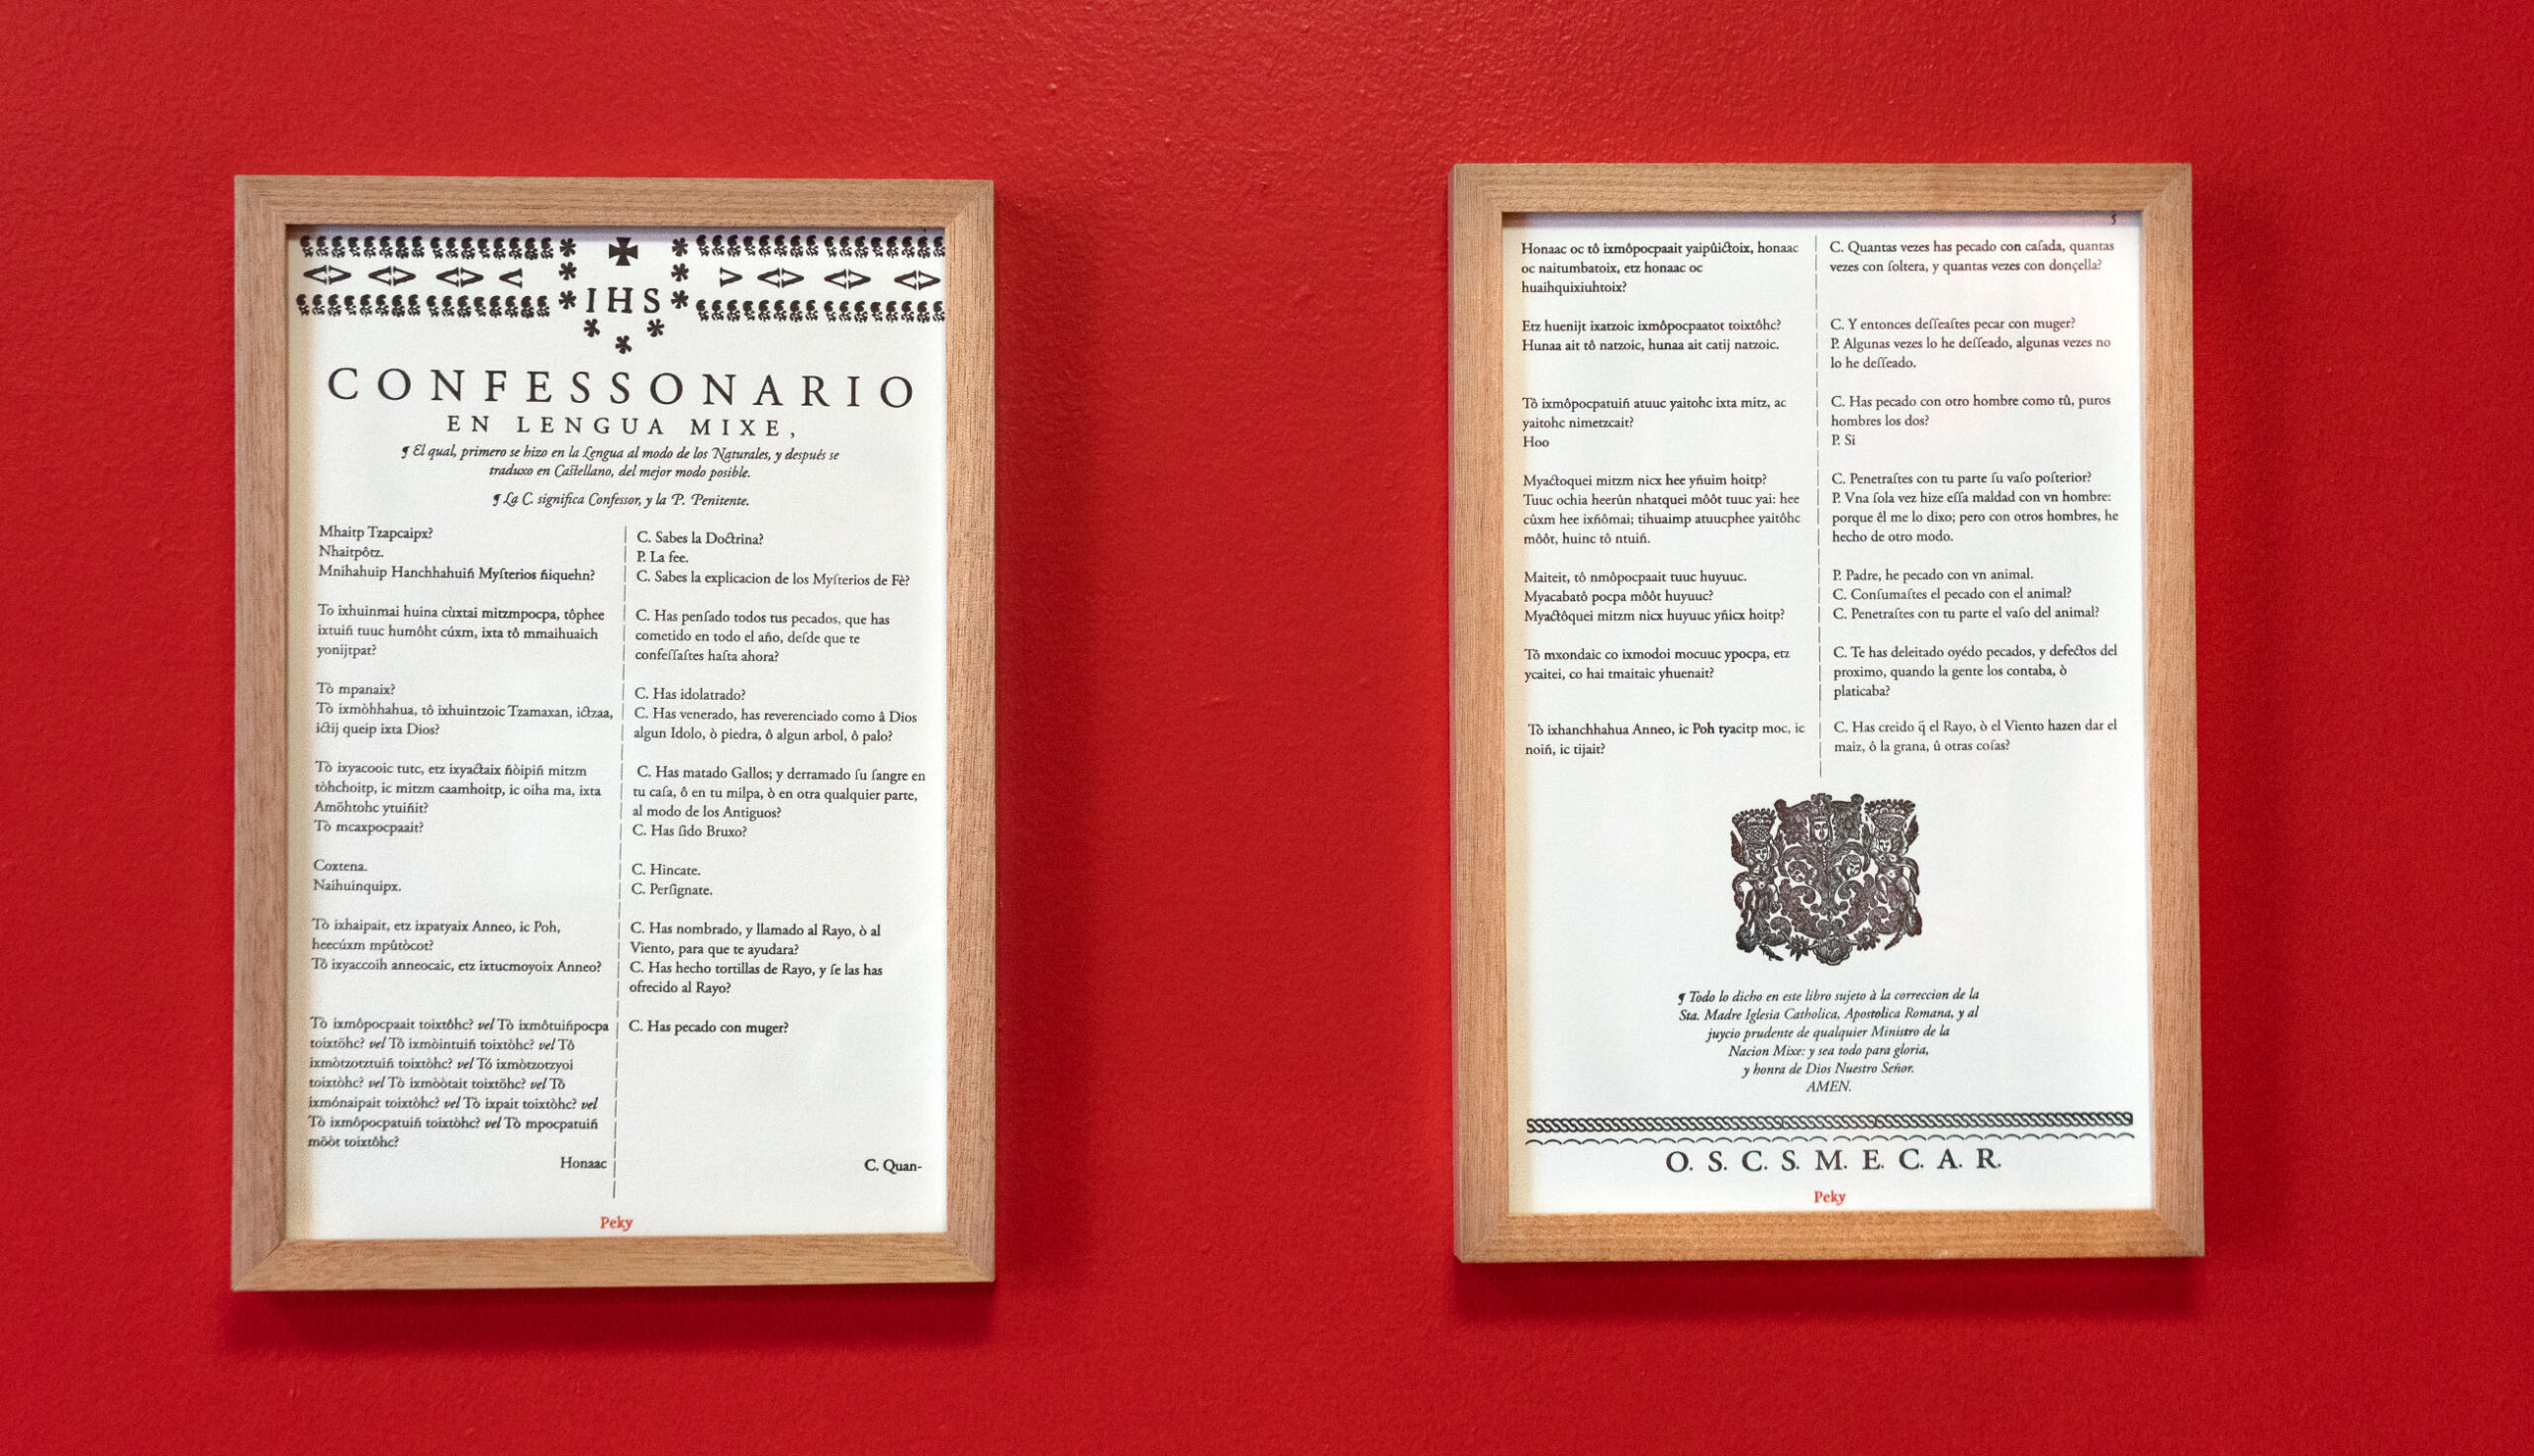 IHS
CONFESSONARIO
EN LENGUA MIXE,
¶ El qual, primero se hizo en la Lengua al modo de los Naturales, y después se
traduxo en Castellano, del mejor modo posible.
¶ La C. significa Confessor, y la P. Penitente.
Mhaitp Tzapcaipx?
Nhaitpôtz.
Mnihahuip Hanchhahuiñ Myſterios ñiquehn?
To ixhuinmai huina cùxtai mitzmpocpa, tôphee
ixtuiñ tuuc humôht cúxm, ixta tô mmaihuaich
yonijtpat?
Tò mpanaix?
Tò ixmòhhahua, tô ixhuintzoic Tzamaxan, ictzaa,
ictij queip ixta Dios?
Tò ixyacooic tutc, etz ixyactaix ñòipiñ mitzm
tòhchoitp, ic mitzm caamhoitp, ic oiha ma, ixta
Amöhtohc ytuiñit?
Tò mcaxpocpaait?
Coxtena.
Naihuinquipx.
Tò ixhaipait, etz ixpatyaix Anneo, ic Poh,
heecúxm mpûtòcot?
Tò ixyaccoih anneocaic, etz ixtucmoyoix Anneo?
Tò ixmôpocpaait toixtôhc? vel Tò ixmôtuiñpocpa
toixtöhc? vel Tò ixmòintuiñ toixtòhc? vel Tô
ixmòtzotztuiñ toixtòhc? vel Tó ixmòtzotzyoi
toixtòhc? vel Tò ixmòòtait toixtöhc? vel Tò
ixmónaipait toixtòhc? vel Tò ixpait toixtòhc? vel
Tò ixmôpocpatuiñ toixtòhc? vel Tò mpocpatuiñ
mõòt toixtôhc?
Honaac
C. Sabes la Doctrina?
P. La fee.
C. Sabes la explicacion de los Myſterios de Fè?
C. Has penſado todos tus pecados, que has
cometido en todo el año, deſde que te
confeſſaſtes haſta ahora?
C. Has idolatrado?
C. Has venerado, has reverenciado como â Dios
algun Idolo, ò piedra, ô algun arbol, ô palo?
C. Has matado Gallos; y derramado ſu ſangre en
tu caſa, ô en tu milpa, ò en otra qualquier parte,
al modo de los Antiguos?
C. Has ſido Bruxo?
C. Hincate.
C. Perſignate.
C. Has nombrado, y llamado al Rayo, ò al
Viento, para que te ayudara?
C. Has hecho tortillas de Rayo, y ſe las has
ofrecido al Rayo?
C. Has pecado con muger?
C. Quan-
Peky
5
Honaac oc tô ixmôpocpaait yaipûictoix, honaac
oc naitumbatoix, etz honaac oc
huaihquixiuhtoix?
Etz huenijt ixatzoic ixmôpocpaatot toixtôhc?
Hunaa ait tô natzoic, hunaa ait catij natzoic.
Tò ixmôpocpatuiñ atuuc yaitohc ixta mitz, ac
yaitohc nimetzcait?
Hoo
Myactoquei mitzm nicx hee yñuim hoitp?
Tuuc ochia heerûn nhatquei môôt tuuc yai: hee
cûxm hee ixñômai; tihuaimp atuucphee yaitôhc
môôt, huinc tô ntuiñ.
Maiteit, tô nmôpocpaait tuuc huyuuc.
Myacabatô pocpa môôt huyuuc?
Myactôquei mitzm nicx huyuuc yñicx hoitp?
Tò mxondaic co ixmodoi mocuuc ypocpa, etz
ycaitei, co hai tmaitaic yhuenait?
Tò ixhanchhahua Anneo, ic Poh tyacitp moc, ic
noiñ, ic tijait?
C. Quantas vezes has pecado con caſada, quantas
vezes con ſoltera, y quantas vezes con donçella?
C. Y entonces deſſeaſtes pecar con muger?
P. Algunas vezes lo he deſſeado, algunas vezes no
lo he deſſeado.
C. Has pecado con otro hombre como tû, puros
hombres los dos?
P. Si
C. Penetraſtes con tu parte ſu vaſo poſterior?
P. Vna ſola vez hize eſſa maldad con vn hombre:
porque êl me lo dixo; pero con otros hombres, he
hecho de otro modo.
P. Padre, he pecado con vn animal.
C. Conſumaſtes el pecado con el animal?
C. Penetraſtes con tu parte el vaſo del animal?
C. Te has deleitado oyédo pecados, y defectos del
proximo, quando la gente los contaba, ò
platicaba?
C. Has creido q̃ el Rayo, ò el Viento hazen dar el
maiz, ô la grana, û otras coſas?
¶ Todo lo dicho en este libro sujeto à la correccion de la
Sta. Madre Iglesia Catholica, Apostolica Romana, y al
juycio prudente de qualquier Ministro de la
Nacion Mixe: y sea todo para gloria,
y honra de Dios Nuestro Señor.
AMEN.
O. S. C. S. M. E. C. A. R.
Peky